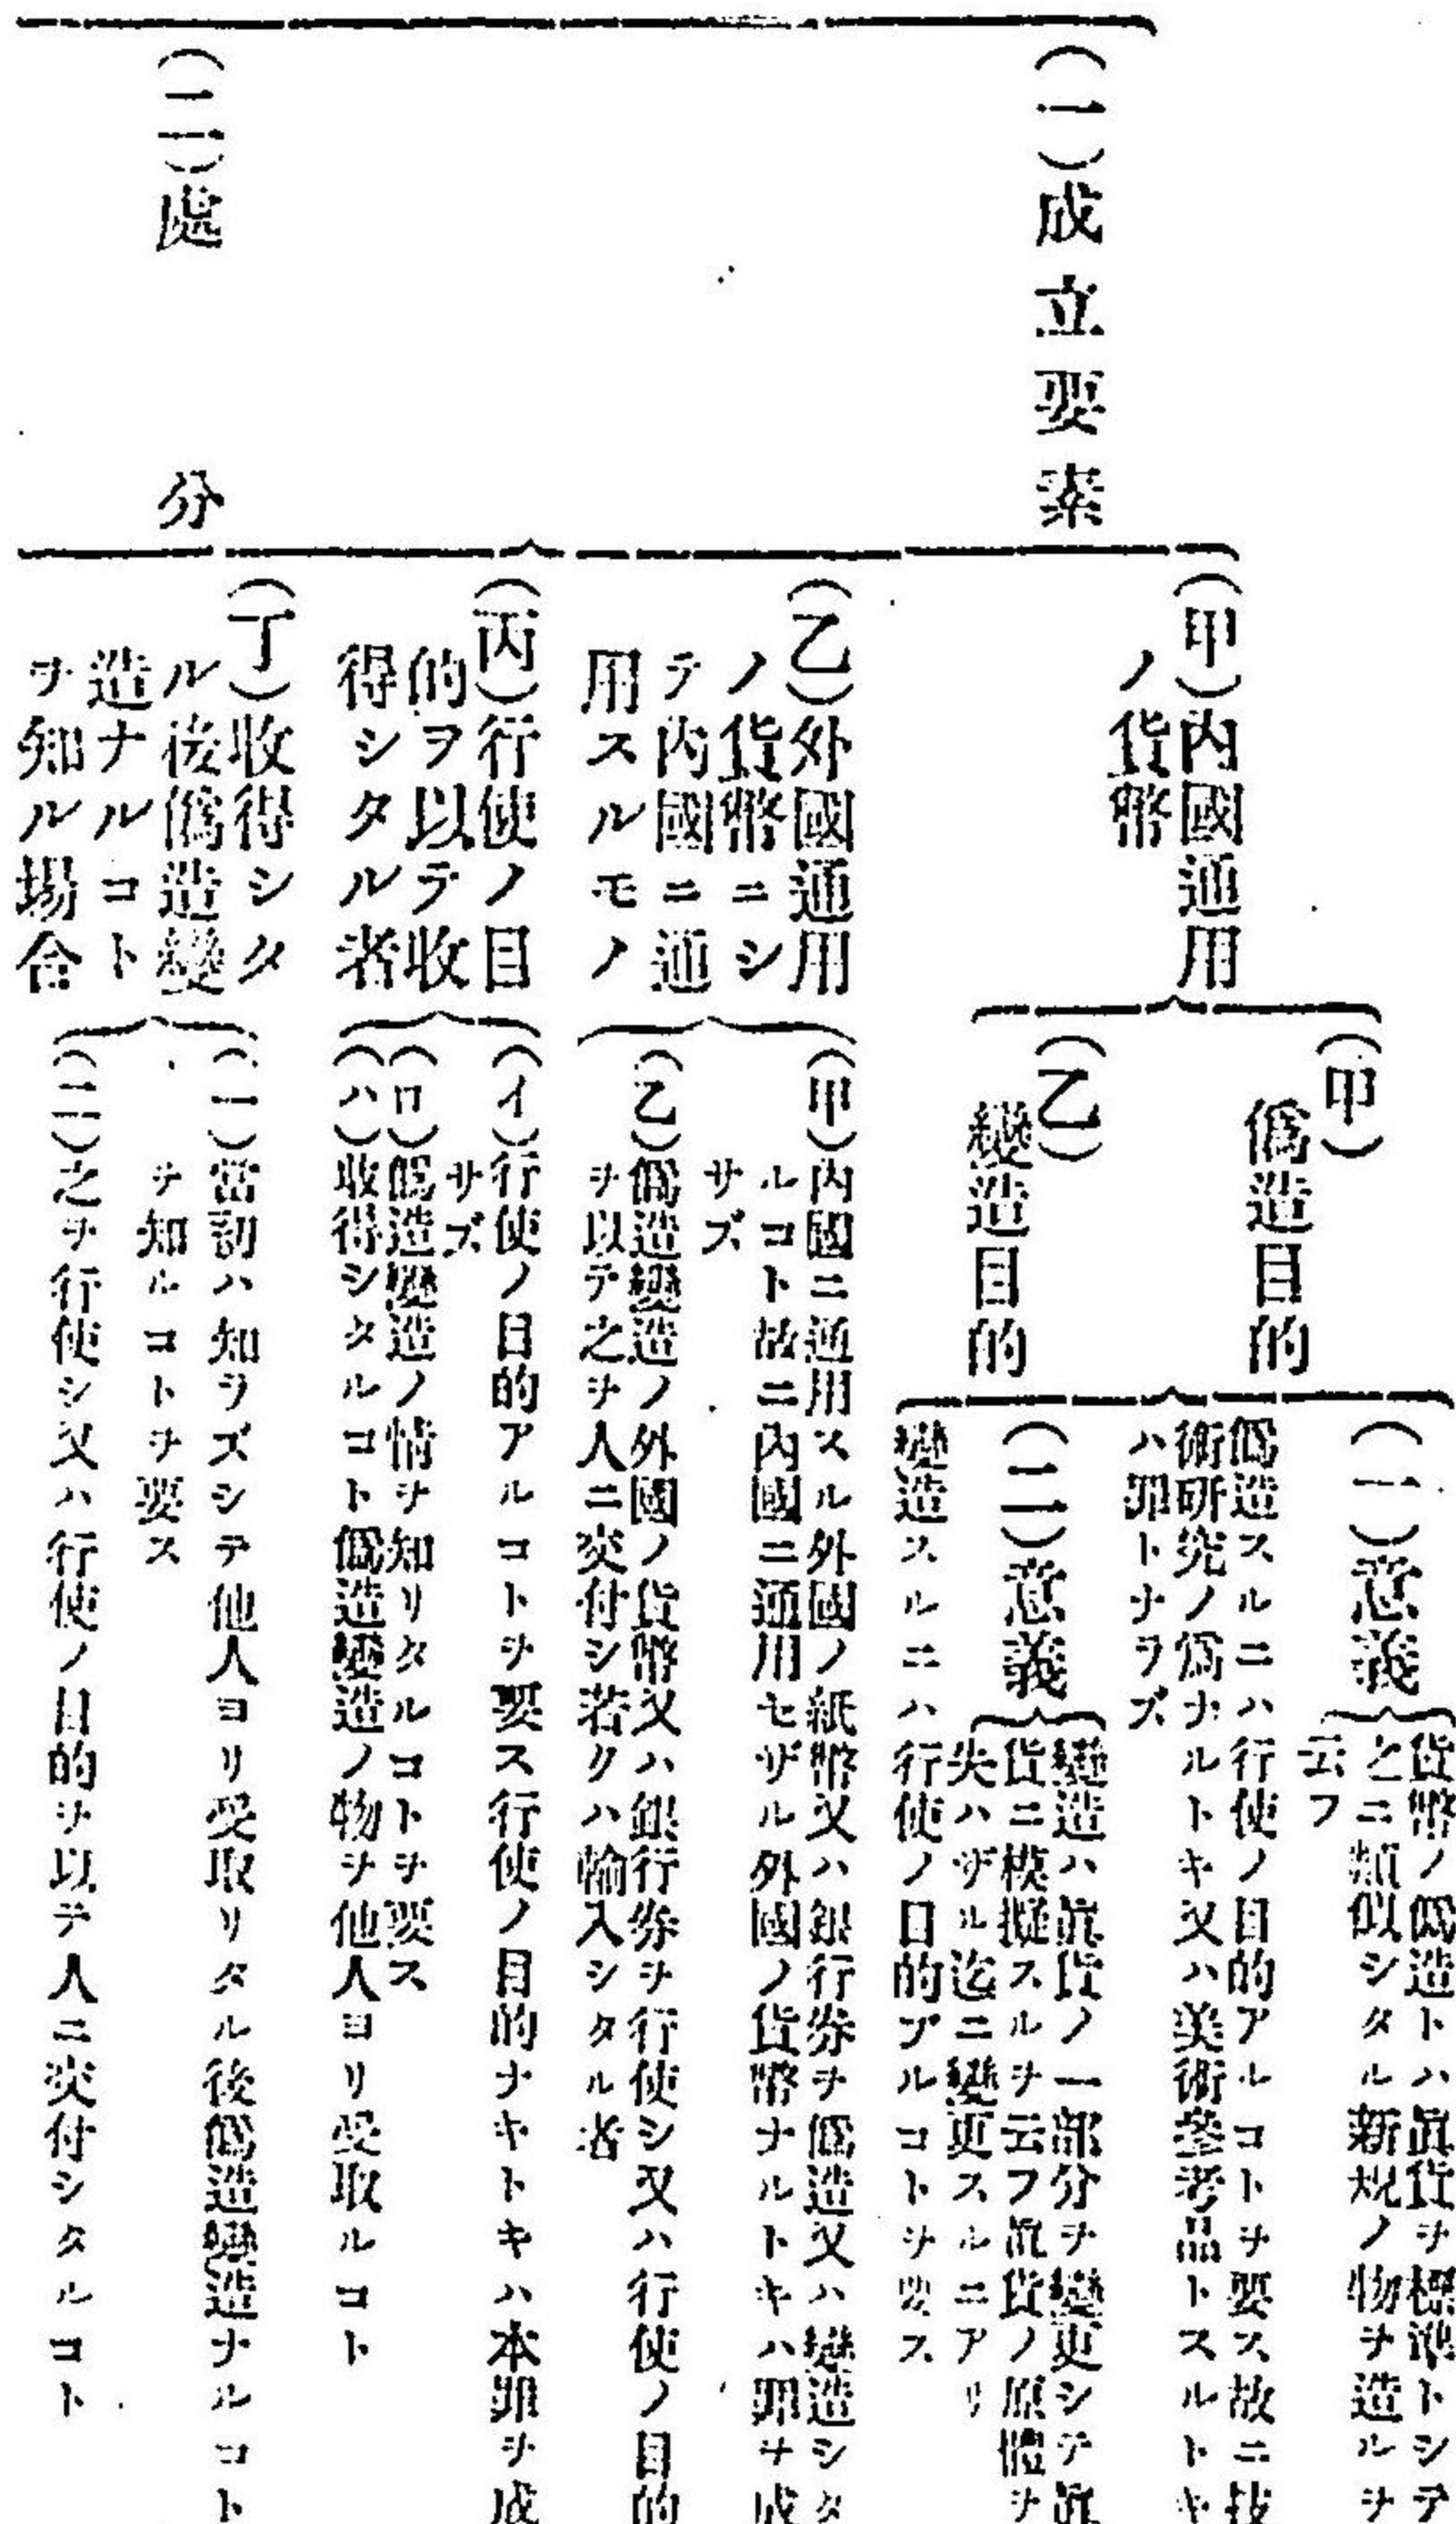 （一）成立要素
（甲）內國通用
ノ貨幣
（甲）
僞造目的
（一）意義
貨幣ノ僞造トハ眞貨ヲ標準トシテ
之ニ類似シタル新規ノ物ヲ造ルヲ
云フ
僞造スルニハ行使ノ目的アルコトヲ要ス故ニ技
術研究ノ爲ナルトキ又ハ美術參考品トスルトキ
ハ罪トナラズ
（乙）
變造目的
（二）意義
變造ハ眞貨ノ一部分ヲ變更シテ眞
貨ニ模擬スルヲ云フ眞貨ノ原體ヲ
失ハザル迄ニ變更スルニアリ
變造スルニハ行使ノ目的アルコトヲ要ス
（乙）外國通用
ノ貨幣ニシ
テ內國ニ通
用スルモノ
（甲）內國ニ通用スル外國ノ紙幣又ハ銀行券ヲ僞造又ハ變造シタ
ルコト故ニ內國ニ通用セザル外國ノ貨幣ナルトキハ罪ヲ成
サズ
（乙）僞造變造ノ外國ノ貨幣又ハ銀行券ヲ行使シ又ハ行使ノ目的
ヲ以テ之ヲ人ニ交付シ若クハ輸入シタル者
（丙）行使ノ目
的ヲ以テ收
得シタル者
（イ）行使ノ目的アルコトヲ要ス行使ノ目的ナキトキハ本罪ヲ成
サズ
（ロ）僞造變造ノ情ヲ知リタルコトヲ要ス
（ハ）收得シタルコト僞造變造ノ物ヲ他人ヨリ受取ルコト
（丁）收得シタ
ル後僞造變
造ナルコト
ヲ知ル場合
（一）當初ハ知ラズシテ他人ヨリ受取リタル後僞造變造ナルコト
ヲ知ルコトヲ要ス
（二）之ヲ行使シ又ハ行使ノ目的ヲ以テ人ニ交付シタルコト
（二）處分